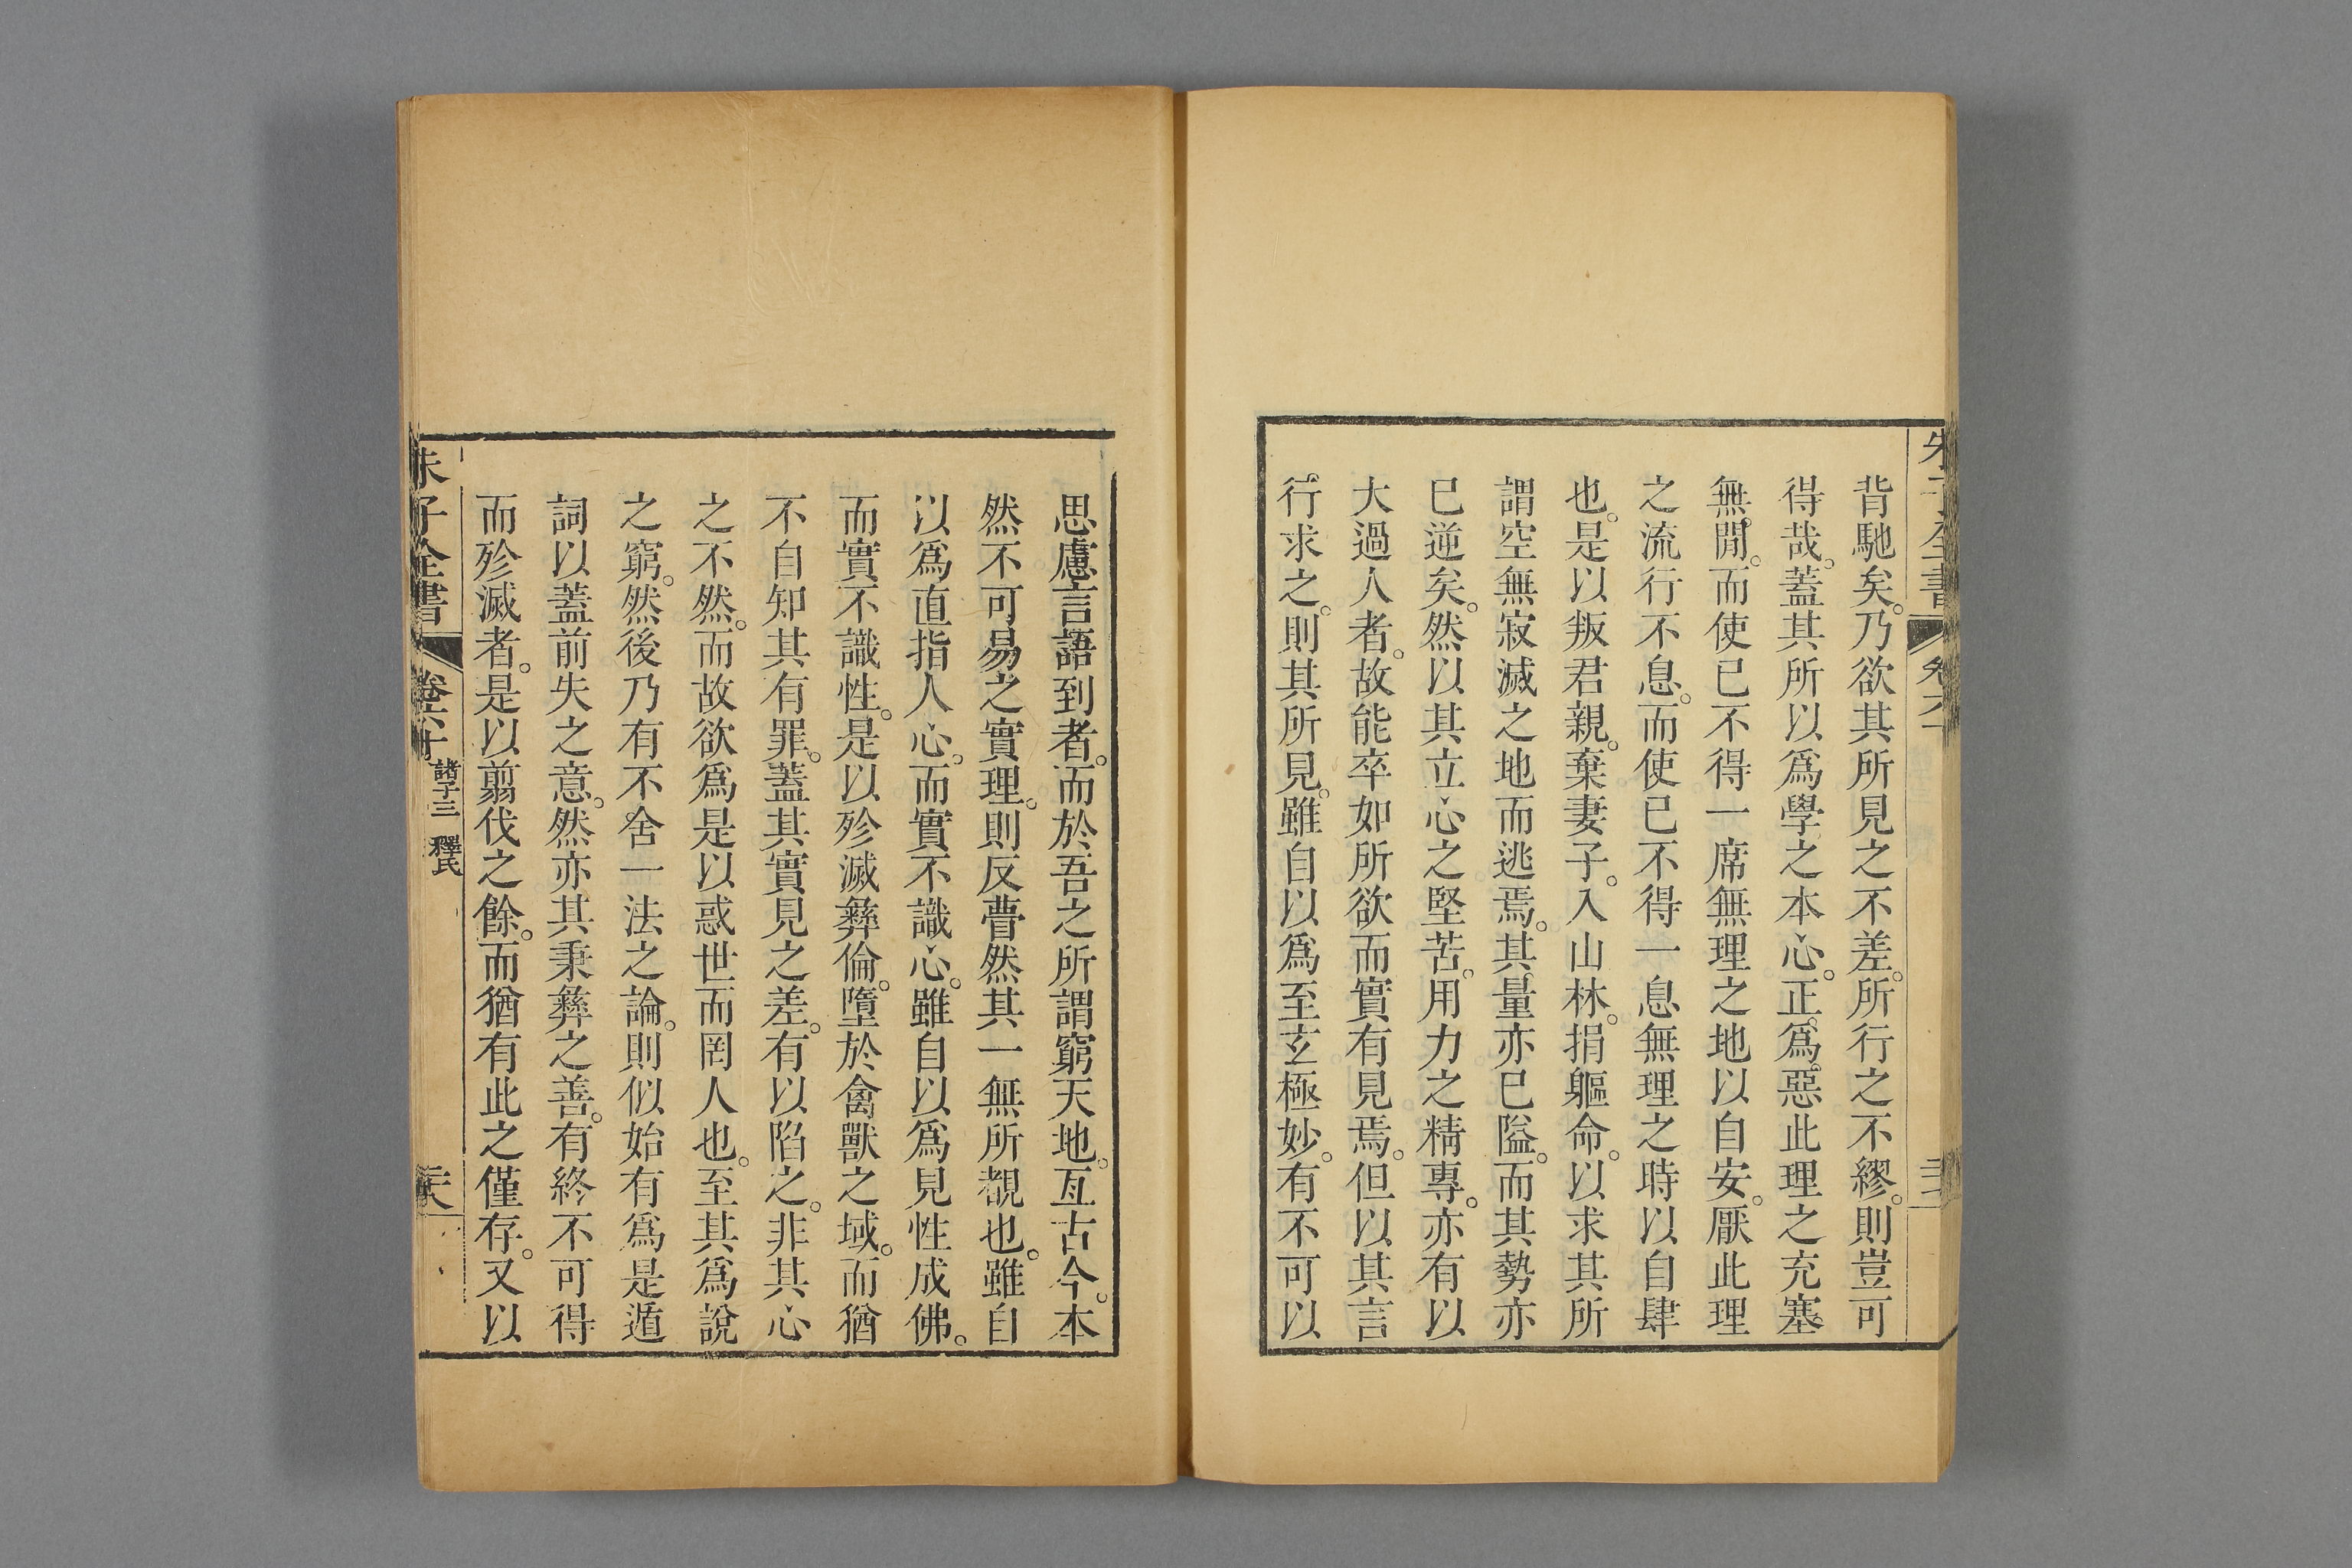 背馳矣。乃欲其所見之不差。所行之不繆。則豈可
得哉。蓋其所以爲學之本心。正爲惡此理之充塞
無閒。而使已不得一席無理之地以自安。厭此理
之流行不息。而使已不得一息無理之時以自肆
也。是以叛君親。棄妻子。入山林。捐軀命。以求其所
謂空無寂滅之地而逃焉。其量亦已隘。而其勢亦
已逆矣。然以其立心之堅苦。用力之精專。亦有以
大過人者。故能卒如所欲而實有見焉。但以其言
行求之。則其所見。雖自以爲至玄極妙。有不可以
思慮言語到者。而於吾之所謂窮天地。亙古今。本
然不可易之實理。則反瞢然其一無所覩也。雖自
以爲直指人心。而實不識心。雖自以爲見性成佛。
而實不識性。是以殄滅彝倫。墮於禽獸之域。而猶
不自知其有罪。蓋其實見之差。有以陷之。非其心
之不然。而故欲爲是以惑世而罔人也。至其爲說
之窮。然後乃有不舍一法之論。則似始有爲是遁
詞以蓋前失之意。然亦其秉彝之善。有終不可得
而殄滅者。是以翦伐之餘。而猶有此之僅存。又以
朱子全書
卷六十
諸子三 釋氏